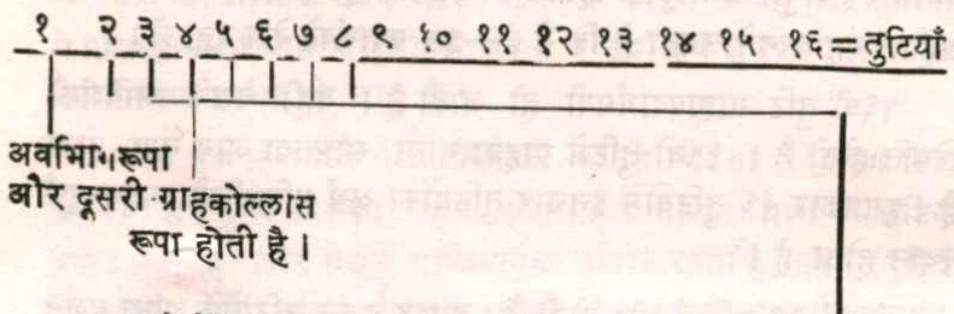 १ २ ३ ४ ५ ६ ७ ८ ९ १० ११ १२ १३ १४ १५ १६ = तुटियाँ
अविभाग रूपा
और दूसरी ग्राहकोल्लास
रूपा होती है ।